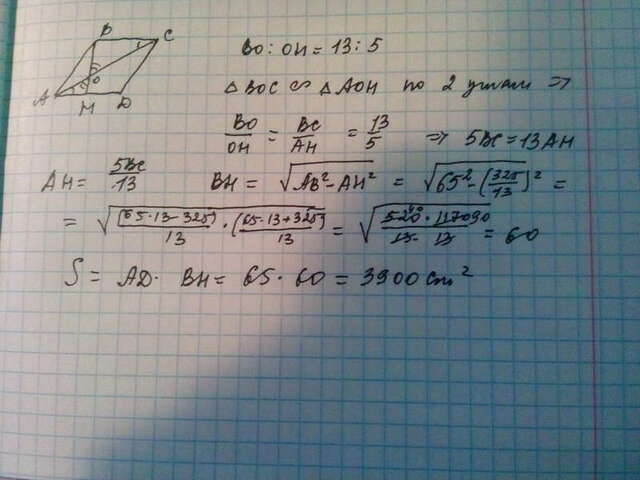 B C
A H D
O
BO : OH = 13 : 5
△BOC ∾ △AOH по 2 углам ⇒
BO/OH = BC/AH = 13/5 ⇒ 5BC = 13AH
AH = 5BC/13 BH = √(AB² - AH²) = √(65² - (325/13)²) =
= √((65·13-325)/13 · (65·13+325)/13) = √(520· / 13· 13) = 60
S = AD · BH = 65 · 60 = 3900 cm²